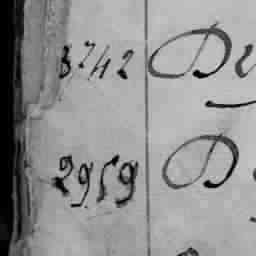 3742 De
2959 D